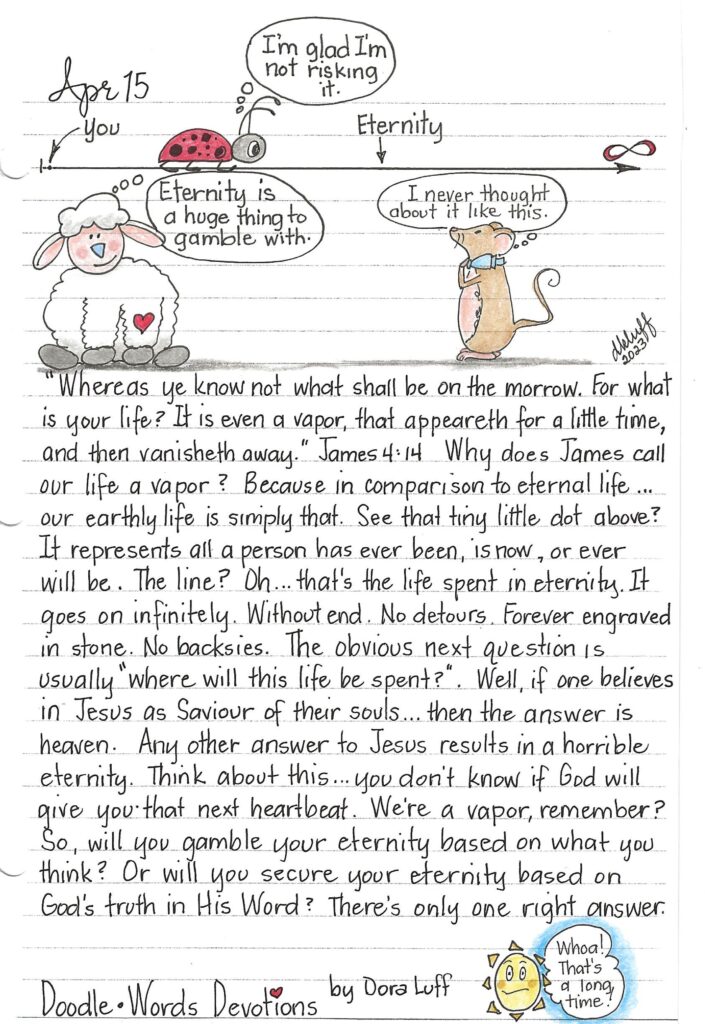 Apr 15
I'm glad I'm
not risking
it.
You
Eternity
Eternity is
a huge thing to
gamble with.
I never thought
about it like this.
dkluff
2023
"Whereas ye know not what shall be on the morrow. For what
is your life? It is even a vapor, that appeareth for a little time,
and then vanisheth away." James 4:14 Why does James call
our life a vapor? Because in comparison to eternal life...
our earthly life is simply that. See that tiny little dot above?
It represents all a person has ever been, is now, or ever
will be. The line? Oh...that's the life spent in eternity. It
goes on infinitely. Without end. No detours. Forever engraved
in stone. No backsies. The obvious next question is
usually "where will this life be spent?". Well, if one believes
in Jesus as Saviour of their souls...then the answer is
heaven. Any other answer to Jesus results in a horrible
eternity. Think about this...you don't know if God will
give you that next heartbeat. We're a vapor, remember?
So, will you gamble your eternity based on what you
think? Or will you secure your eternity based on
God's truth in His Word? There's only one right answer.
Whoa!
That's
a long
time!
Doodle•Words Devotions by Dora Luff